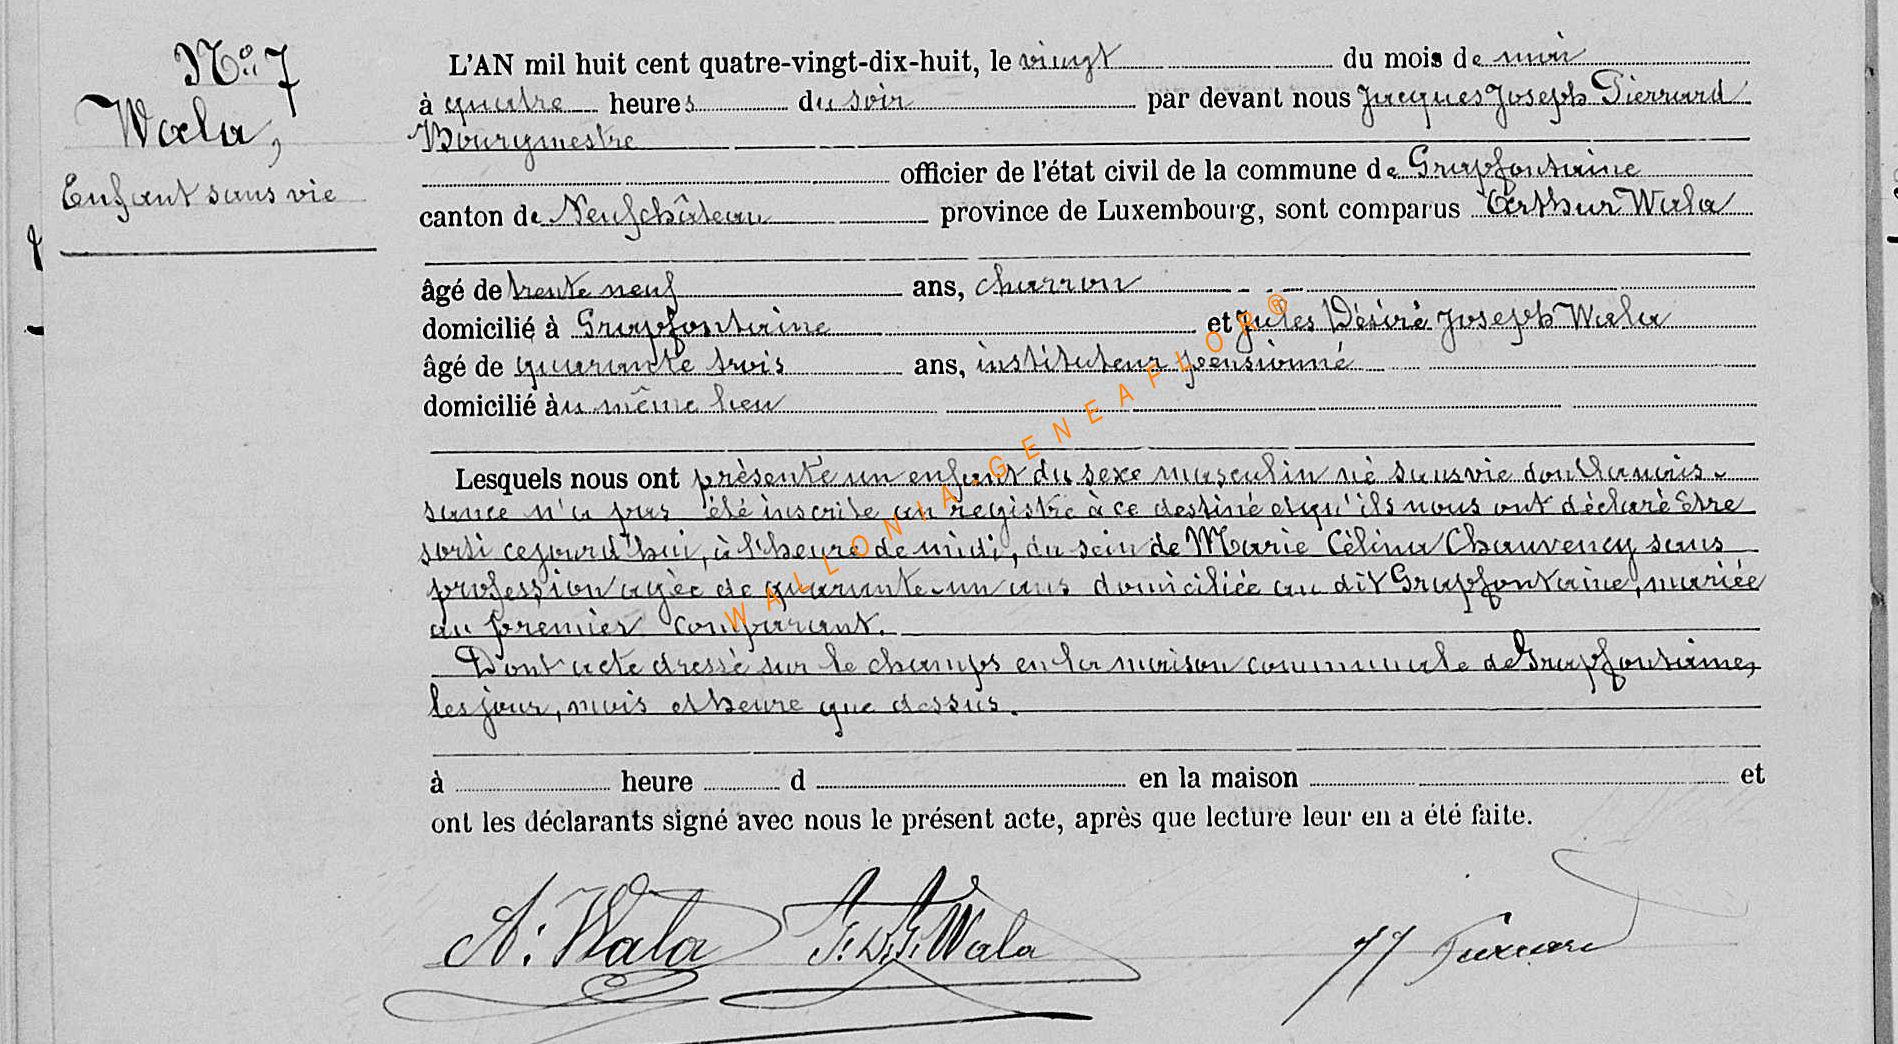 N° 7
Wala,
Enfant sans vie
L'AN mil huit cent quatre-vingt-dix-huit, le vingt du mois de mai
à quatre heures du soir par devant nous Jacques Joseph Pierrard
Bourgmestre
officier de l'état civil de la commune de Grapfontaine
canton de Neufchâteau province de Luxembourg, sont comparus Arthur Wala
âgé de trente neuf ans, charron
domicilié à Grapfontaine et Jules Désiré Joseph Wala
âgé de quarante trois ans, instituteur pensionné
domicilié au même lieu
Lesquels nous ont présenté un enfant du sexe masculin né sans vie dont la nais-
sance n'a pas été inscrite au registre à ce destiné et qu'ils nous ont déclaré être
sorti cejourd'hui, à l'heure de midi, du sein de Marie Célina Chauvency sans
profession agée de quarante-un ans domiciliée au dit Grapfontaine, mariée
au premier comparant.
Dont acte dressé sur le champs en la maison communale de Grapfontaine,
les jour, mois et heure que dessus.
à heure d en la maison et
ont les déclarants signé avec nous le présent acte, après que lecture leur en a été faite.
A: Wala J. D. J. Wala JJ Pierrard
WALLONIA-GENEAFLOR®